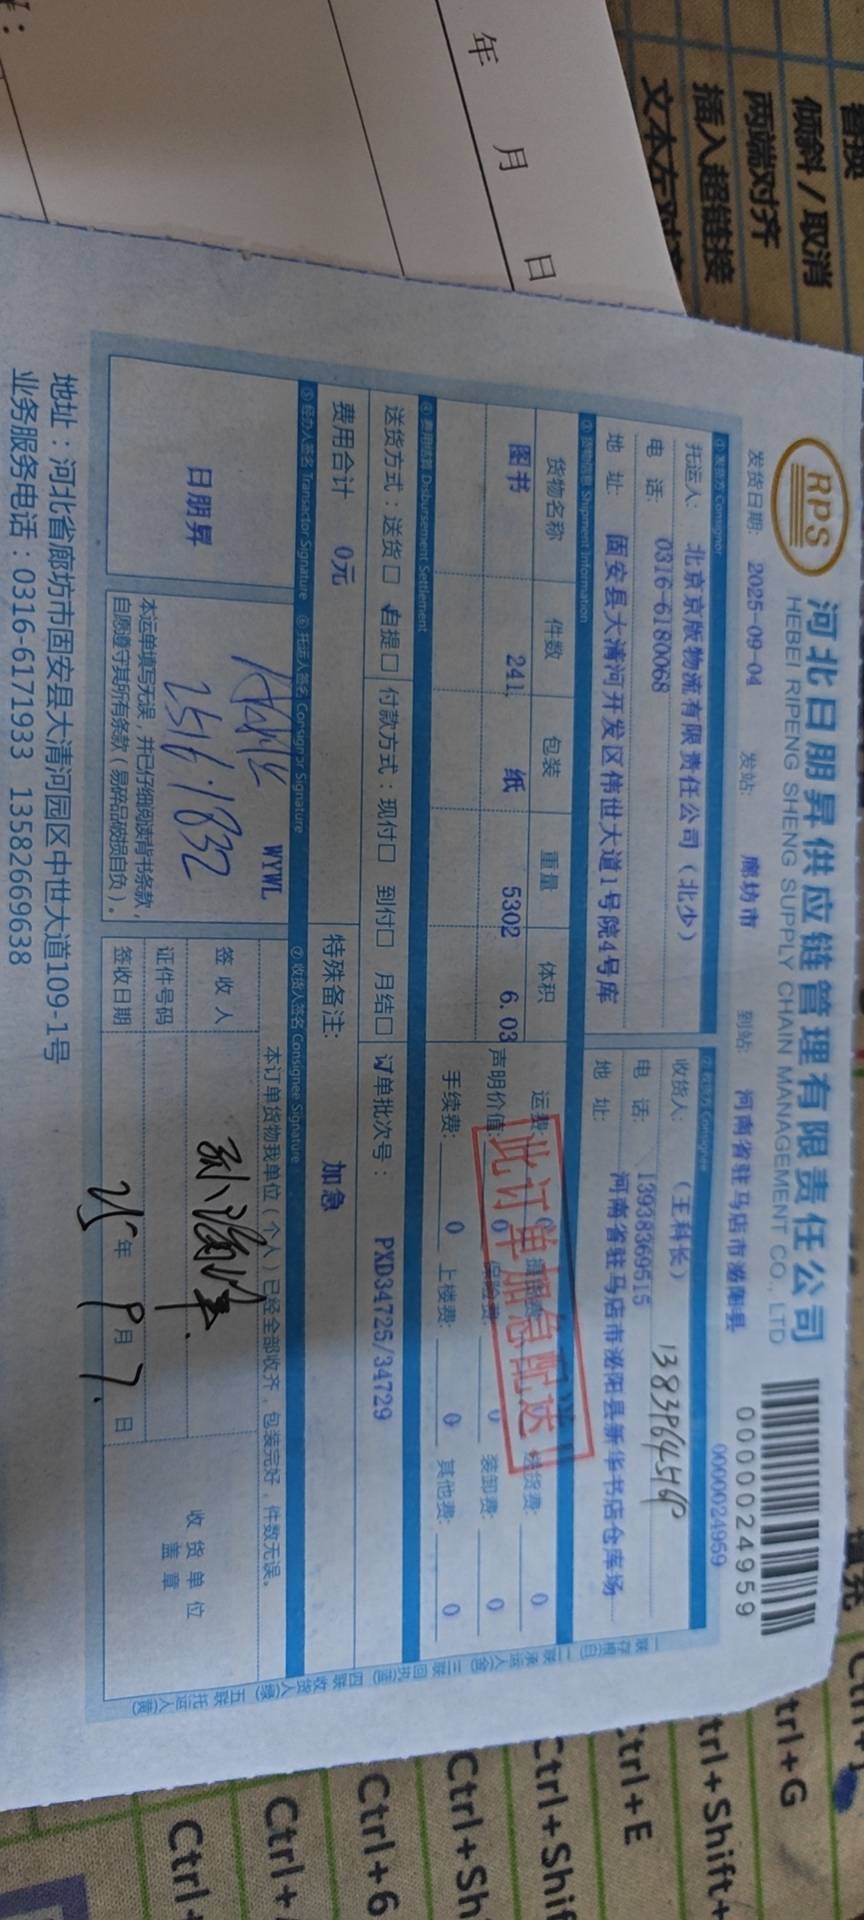 年 月 日
替换
倾斜/取消
两端对齐
插入超链接
RPS
河北日朋昇供应链管理有限责任公司
HEBEI RIPENG SHENG SUPPLY CHAIN MANAGEMENT CO., LTD
0000024959
发货日期: 2025-09-04 发站: 廊坊市 到站: 河南省驻马店市泌阳县
0000024959
① 发货方 Consignor
② 收货方 Consignee
托运人: 北京京版物流有限责任公司(北少)
收货人: (王科长)
电 话: 0316-6180068
电 话: 13938369515
地 址: 固安县大清河开发区伟世大道1号院4号库
地 址: 河南省驻马店市泌阳县新华书店仓库场
③ 货物信息 Shipment Information
货物名称 件数 包装 重量 体积
图书 241 纸 5302 6.03
运费: 0 送货费: 0
声明价值: 0 保险费: 0 装卸费: 0
手续费: 0 上楼费: 0 其他费: 0
此订单加急配送!
④ 费用结算 Disbursement Settlement
送货方式:送货□ 自提□ 付款方式:现付□ 到付□ 月结□ 订单批次号: PXD34725/34729
费用合计 0元 特殊备注: 加急
⑤ 经办人签名 Transactor Signature ⑥ 托运人签名 Consignor Signature ⑦ 收货人签名 Consignee Signature
日朋昇
WYWL
本运单填写无误,并已仔细阅读背书条款,
自愿遵守其所有条款(易碎品破损自负)。
本订单货物我单位(个人)已经全部收齐,包装完好,件数无误。
签收人
证件号码
签收日期 25年 9月 7日
收货单位
盖章
一联存根(白) 二联承运人(金) 三联回执(蓝) 四联收货人(绿) 五联托运人(黄)
地址:河北省廊坊市固安县大清河园区中世大道109-1号
业务服务电话:0316-6171933 13582669638
trl+G
trl+Shift+
Ctrl+E
Ctrl+Shif
Ctrl+Sh
Ctrl+6
Ctrl+
Ctrl